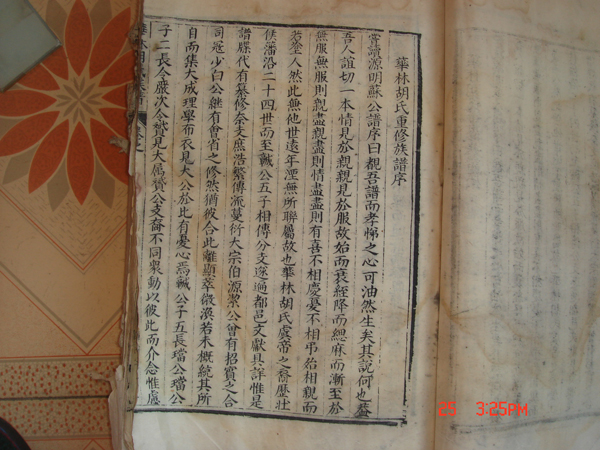 華林胡氏重修族譜序
嘗讀源明蘇公譜序曰觀吾譜而孝悌之心可油然生矣其說何也蓋
吾人誼切一本情見於親親見於服故始而衰絰降而緦麻而漸至於
無服無服則親盡親盡則情盡情盡則有喜不相慶憂不相弔若相親而
若塗人然此無他世遠年湮無所聯屬故也華林胡氏虞帝之裔歷壯
侯藩沿二十四世而至瑊公五子相傳分支遂遍都邑文獻具詳惟是
譜牒代有纂修奈支庶浩繁傳流蔓衍大宗伯源潔公會有招賓之合
司冠少白公繼有會省之修然猶彼合此離顯萃微渙若未概統其所
自而集大成理學布衣見大公於此有憂心焉瑊公子五長璫公璫公
子二長令嚴次令贊見大屬贊公支裔不同衆動以彼此而介念惟慮
25 3:25PM